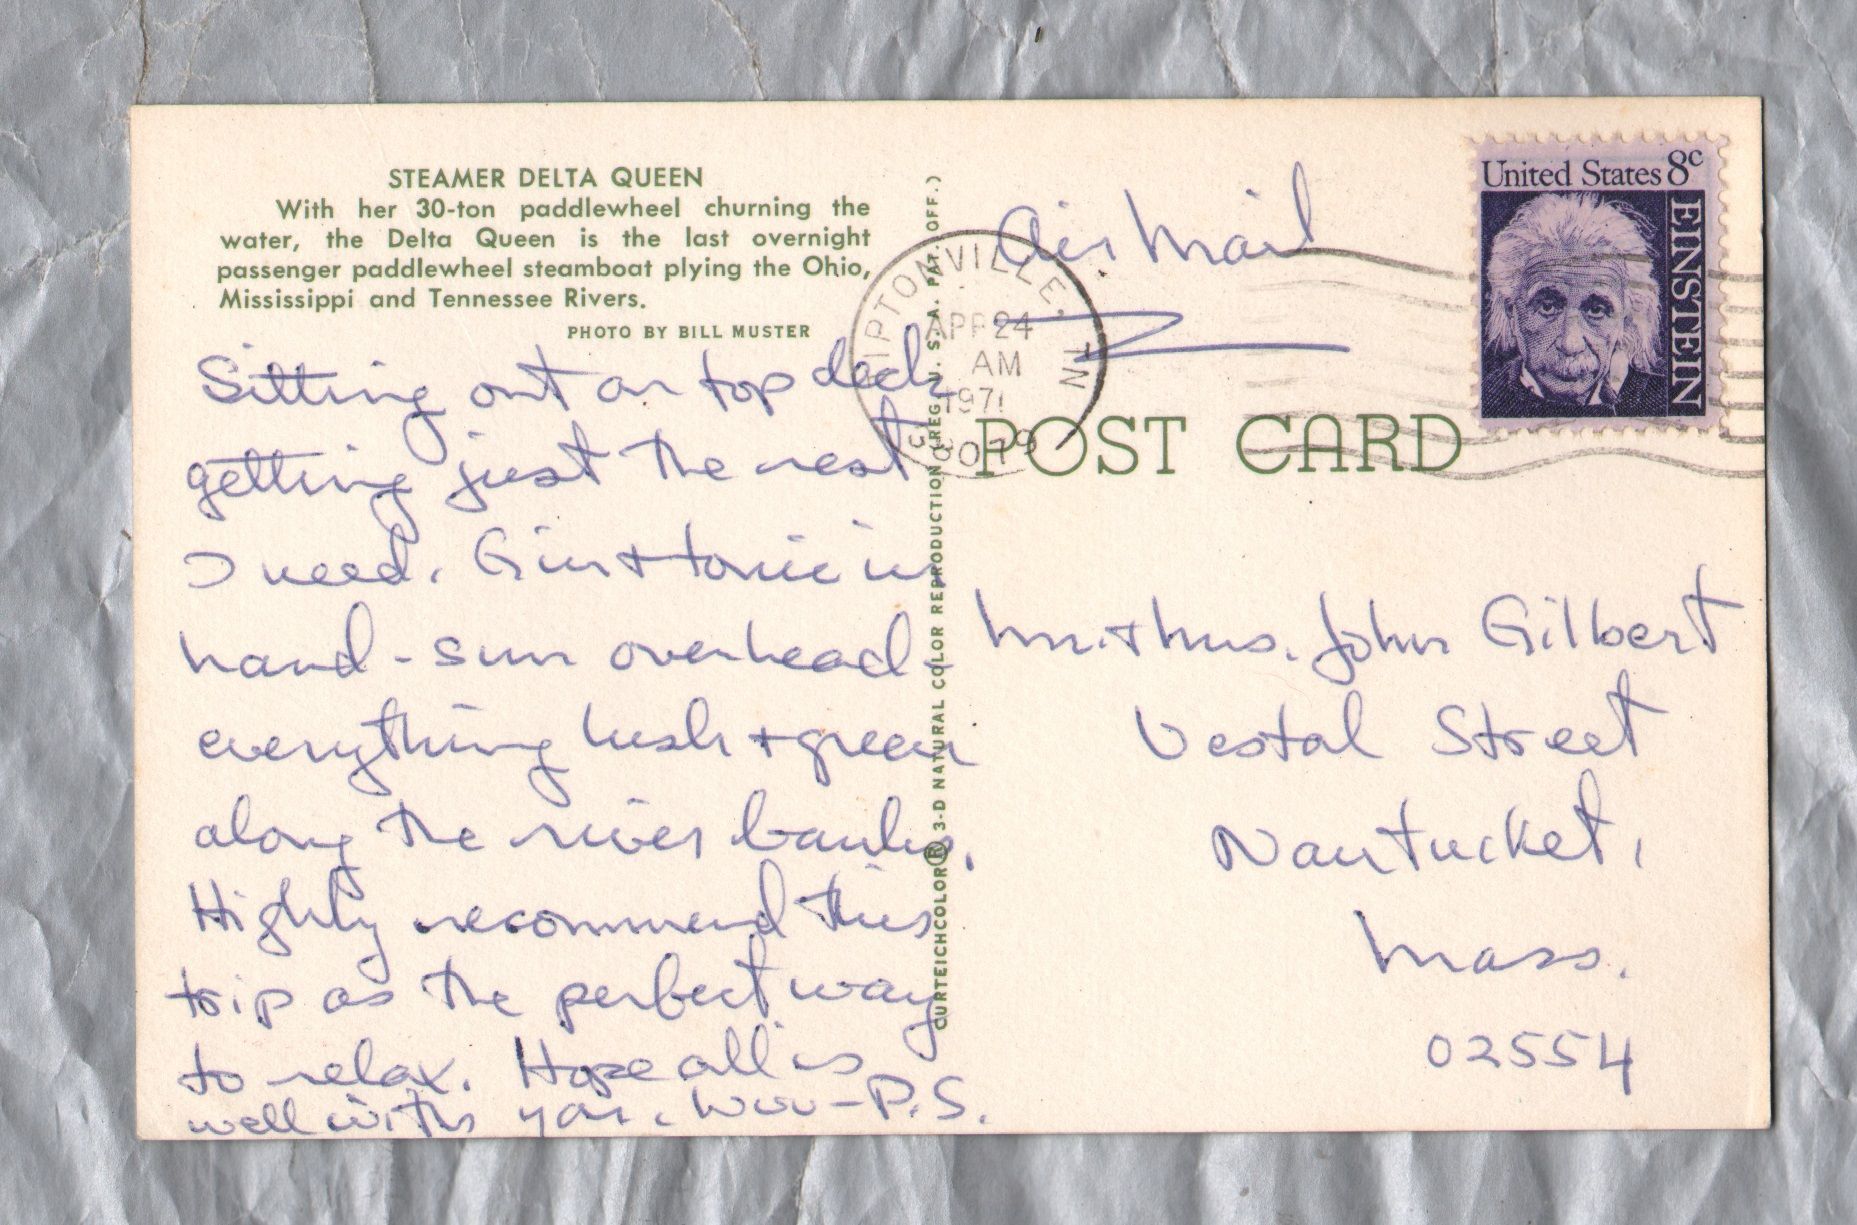 STEAMER DELTA QUEEN
With her 30-ton paddlewheel churning the
water, the Delta Queen is the last overnight
passenger paddlewheel steamboat plying the Ohio,
Mississippi and Tennessee Rivers.
PHOTO BY BILL MUSTER
Sitting out on top deck
getting just the rest
I need. Gin + tonic in
hand - sun overhead -
everything lush + green
along the river banks.
Highly recommend this
trip as the perfect way
to relax. Hope all is
well with you. - P.S.
CURTEICHCOLOR® 3-D NATURAL COLOR REPRODUCTION (REG. U. S. A. PAT. OFF.)
Air Mail
TIPTONVILLE, TN
APR 24
AM
1971
POST CARD
United States 8c
EINSTEIN
Mr. + Mrs. John Gilbert
Vestal Street
Nantucket,
Mass.
02554